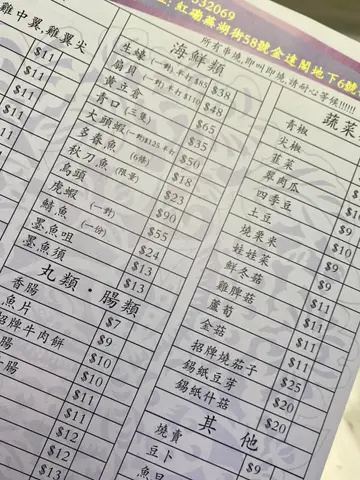 32069
紅磡蕪湖街58號金達閣地下6號
所有串燒,即叫即燒,請耐心等候!!!!!!
雞中翼,雞翼尖
$11
$11
$11
$11
海鮮類
生蠔 (一對)半打$85 $38
扇貝 (一對)半打$110 $48
黃豆倉 $65
青口 (三隻) $35
大頭蝦 (一對)$125.半打 $50
多春魚 (6條) $18
秋刀魚 (限量) $23
烏頭 $90
虎蝦 (一對) $55
鯖魚 (一份) $24
墨魚咀 $13
墨魚須 $13
丸類·腸類
香腸 $7
魚片 $9
招牌牛肉餅 $10
腸 $10
腸 $11
$11
$12
$12
$13
蔬菜
青椒
尖椒
韮菜
翠肉瓜
四季豆
土豆 $9
燒粟米 $10
娃娃菜 $11
鮮冬菇 $9
雞脾菇 $11
蘆荀 $11
金菇 $11
招牌燒茄子 $25
錫紙豆芽 $20
錫紙什菇 $20
其他
燒賣 $9
豆卜